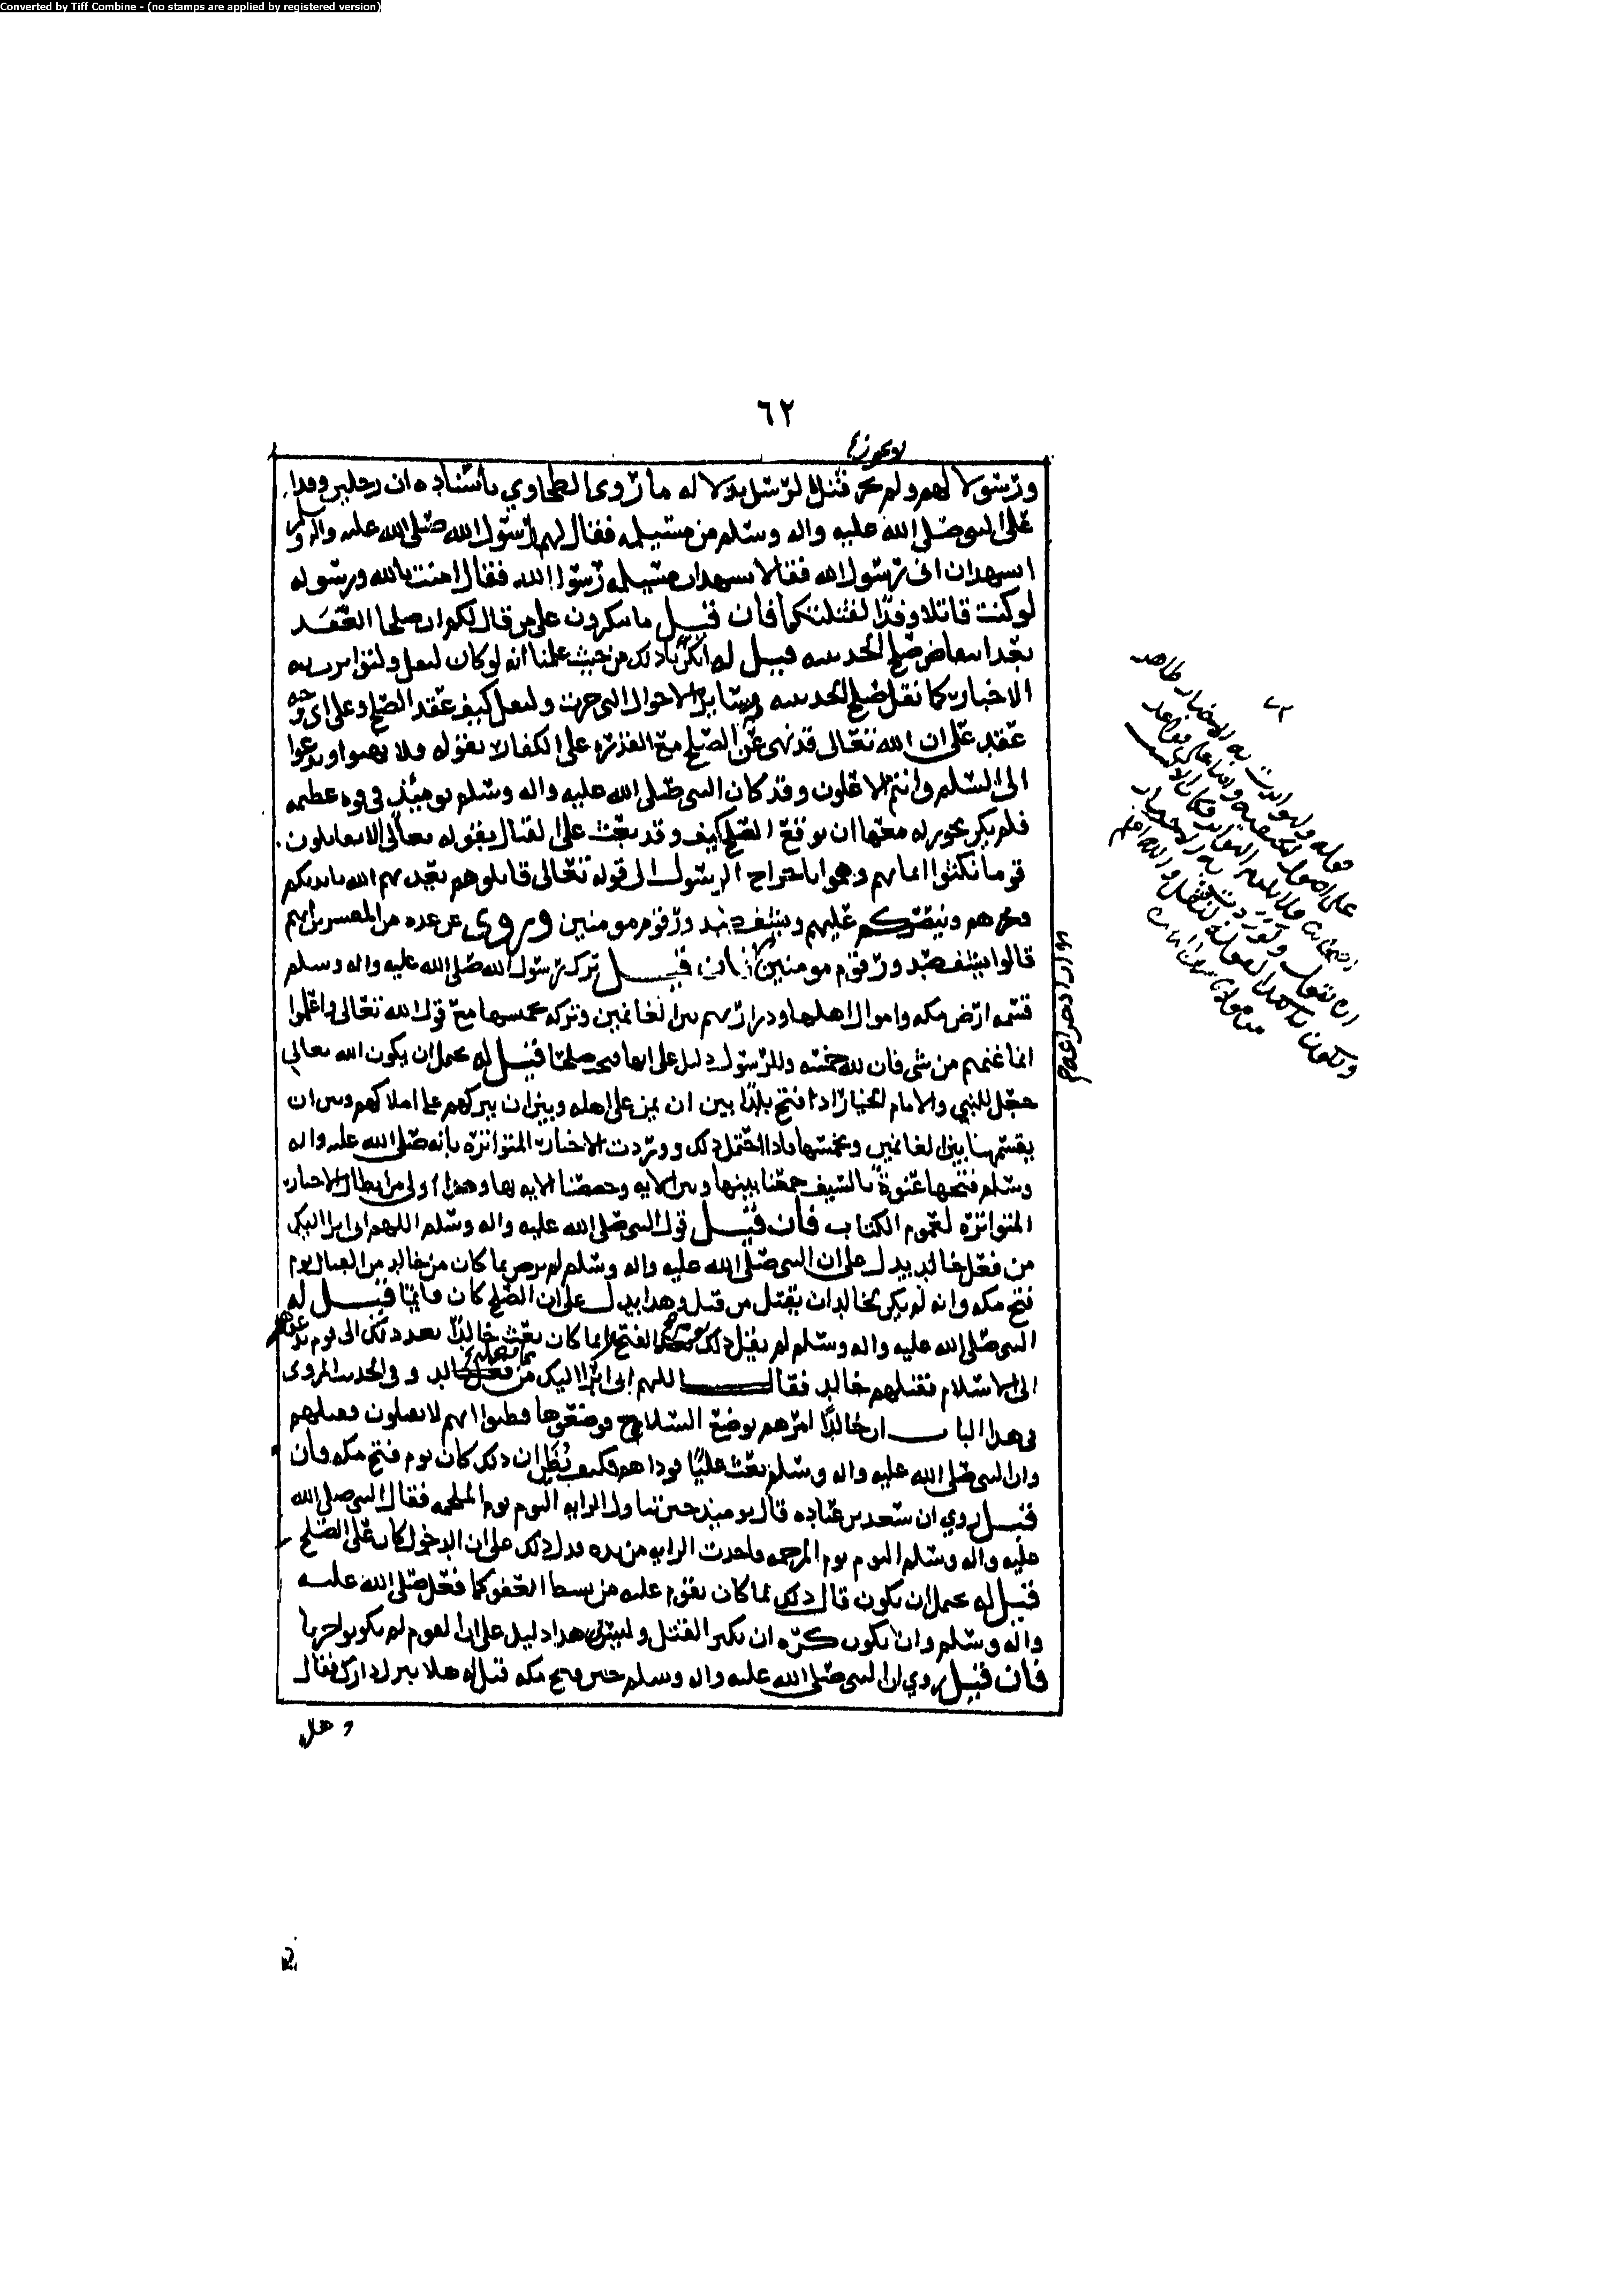 Converted by Tiff Combine - (no stamps are applied by registered version)
٦٢
لا يجوز
ورسولا لهم ولم يجز قتل الرسل بدلاله ما روى الطحاوي باسناده ان رجلين وفدا
على النبي صلى الله عليه واله وسلم من مسيلمه فقال لهما رسول الله صلى الله عليه واله وسلم
اتشهدان اني رسول الله فقالا نشهد ان مسيلمه رسول الله فقال امنت بالله ورسوله
لو كنت قاتلا وفدا لقتلتكما فان قيل ما تنكرون على من قال لكم ان صلحا انعقد
بعد انتقاض صلح الحديبيه قيل له انكرنا ذلك من حيث علمنا انه لو كان لنقل ولتواترت به
الاخبار كما نقل صلح الحديبيه وساير الاحوال التي جرت ولنقل كيف عقد الصلح وعلى اي وجه
عقد على ان الله تعالى قد نهى عن الصلح مع القدره على الكفار بقوله ولا تهنوا وتدعوا
الى السلم وانتم الاعلون وقد كان النبي صلى الله عليه واله وسلم يومئذ في قوه عظيمه
فلم يكن يجوز له معها ان يوقع الصلح كيف وقد بعث على القتال بقوله تعالى الا تقاتلون
قوما نكثوا ايمانهم وهموا باخراج الرسول الى قوله تعالى قاتلوهم يعذبهم الله بايديكم
ويخزهم وينصركم عليهم ويشف صدور قوم مومنين وروي عن عده من المفسرين انهم
قالوا يشف صدور قوم مومنين فان قيل ترك رسول الله صلى الله عليه واله وسلم
قسمه ارض مكه واموال اهلها ودراريهم بين الغانمين وتركه تخميسها مع قول الله تعالى واعلموا
انما غنمتم من شي فان لله خمسه وللرسول دليل على انها فتحت صلحا قيل له يحتمل ان يكون الله تعالى
جعل للنبي والامام الخيار اذا فتح بلدا بين ان يمن على اهله وبين ان يتركهم على املاكهم وبين ان
يقسمها بين الغانمين ويخمسها فاذا احتمل ذلك ووردت الاخبار المتواتره بانه صلى الله عليه واله
وسلم فتحها عنوة بالسيف جمعنا بينها وبين الايه وخصصنا الايه بها وهذا اولى من ابطال الاخبار
المتواتره لعموم الكتاب فان قيل قول النبي صلى الله عليه واله وسلم اللهم اني ابرا اليك
من فعل خالد يدل على ان النبي صلى الله عليه واله وسلم لم يرض بما كان من خالد من القتال يوم
فتح مكه وانه لم يكن لخالد ان يقتل من قتل وهذا يدل على ان الصلح كان قائما قيل له
النبي صلى الله عليه واله وسلم لم يقل ذلك يوم فتح انما كان بعث خالدا بعد ذلك الى قوم يدعوهم
الى الاسلام فقتلهم خالد فقال اللهم اني ابرا اليك مما فعل خالد وفي الحديث المروي
في هذا الباب ان خالدا امرهم بوضع السلاح فوضعوها وظنوا انهم لا يقتلون فقتلهم
وان النبي صلى الله عليه واله وسلم بعث عليا فوداهم فكيف يظن ان ذلك كان يوم فتح مكه فان
قيل روي ان سعد بن عباده قال يومئذ حين تناول الرايه اليوم يوم الملحمه فقال النبي صلى الله
عليه واله وسلم اليوم يوم المرحمه واخذت الرايه من يده فدل ذلك على ان الدخول كان على الصلح
قيل له يحتمل ان يكون قال ذلك لما كان يقوم عليه من بسط العفو كما فعل صلى الله عليه
واله وسلم وان يكون كره ان يكثر القتل وليس في هذا دليل على ان القوم لم يكونوا حربا
فان قيل روي ان النبي صلى الله عليه واله وسلم حين فتح مكه قيل له هلا تنزل دارك فقال
وهل